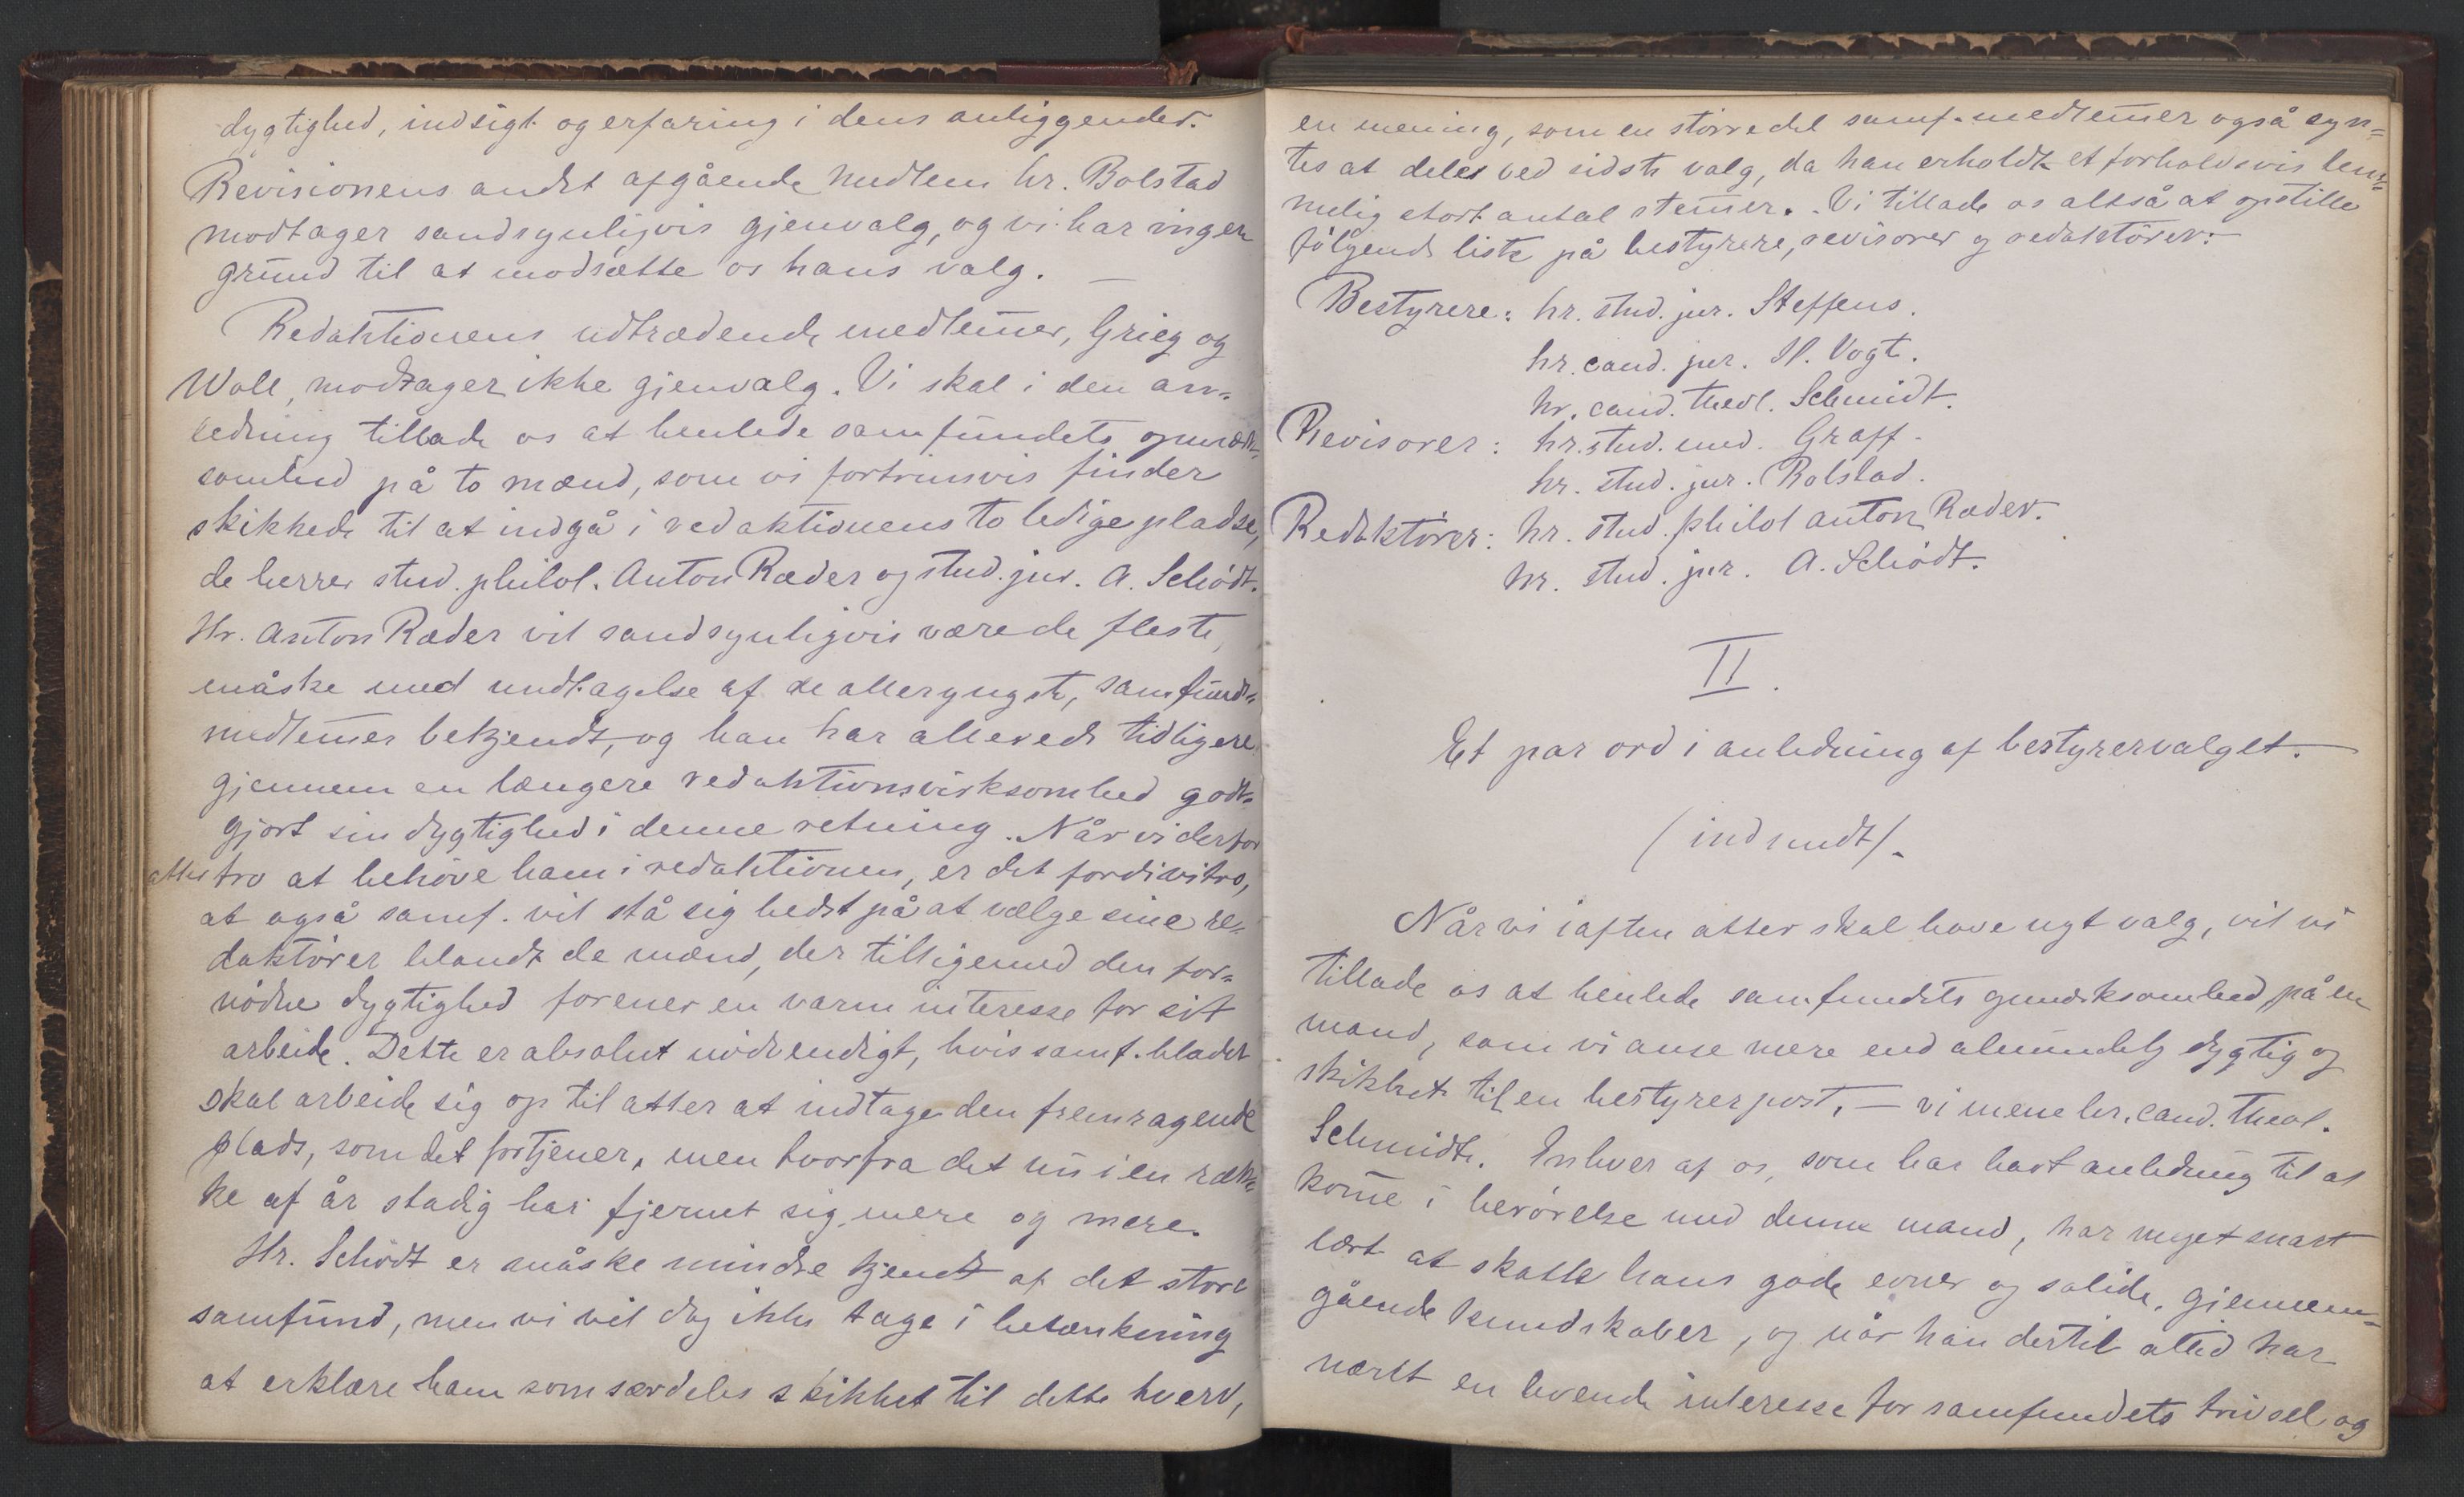 dygtighed, indsigt og erfaring i dens anliggender.
Revisionens andet afgående medlem hr. Bolstad
modtager sandsynligvis gjenvalg, og vi har ingen
grund til at modsætte os hans valg. —
Redaktionens udtrædende medlem̄er, Grieg og
Woll, modtager ikke gjenvalg. Vi skal i den an-
ledning tillade os at henlede samfundets opmærk-
somhed på to mænd, som vi fortrinsvis finder
skikkede til at indgå i redaktionens to ledige pladse,
de herrer stud. philol. Anton Ræder og stud. jur. A. Schödt.
Hr. Anton Ræder vil sandsynligvis være de fleste,
måske med undtagelse af de alleryngste, samfunds-
medlem̄er bekjendt, og han har allerede tidligere
gjennem en længere redaktionsvirksomhed godt-
gjort sin dygtighed i denne retning. Når vi derfor
atter tro at behöve ham i redaktionen, er det fordi vi tro,
at også samf. vil stå sig bedst på at vælge sine re-
daktörer blandt de mænd, der tilligemed den for-
nödne dygtighed forener en varm interesse for sit
arbeide. Dette er absolut nödvendigt, hvis samf. bladet
skal arbeide sig op til atter at indtage den fremragende
plads, som det fortjener, men hvorfra det nu i en ræk-
ke af år stadig har fjernet sig mere og mere.
Hr. Schödt er måske mindre kjendt af det store
samfund, men vi vil dog ikke tage i betænkning
at erklære ham som særdeles skikket til dette hverv,
en mening, som en större del samf. medlem̄er også syn-
tes at deles ved sidste valg, da han erholdt et forholdsvis tem-
melig stort antal stem̄er. Vi tillade os altså at opstille
fölgende liste på bestyrere, revisorer og redaktörer:
Bestyrere: hr. stud. jur. Steffens.
hr. cand. jur. Vogt.
hr. cand. theol. Schmidt.
Revisorer: hr. stud. med. Graff.
hr. stud. jur. Bolstad.
Redaktörer: hr. stud. philol Anton Ræder.
hr. stud. jur. A. Schödt.
II.
Et par ord i anledning af bestyrervalget.
(indsendt).
Når vi iaften atter skal have nyt valg, vil vi
tillade os at henlede samfundets opmerksomhed på en
mand, som vi anse mere end almindelig dygtig og
skikket til en bestyrerpost, — vi mene hr. cand. theol.
Schmidt. Enhver af os, som har havt anledning til at
kom̄e i berörelse med denne mand, har meget snart
lært at skatte hans gode evner og solide, gjennem-
gående kundskaber, og når han dertil altid har
næret en levende interesse for samfundets trivsel og